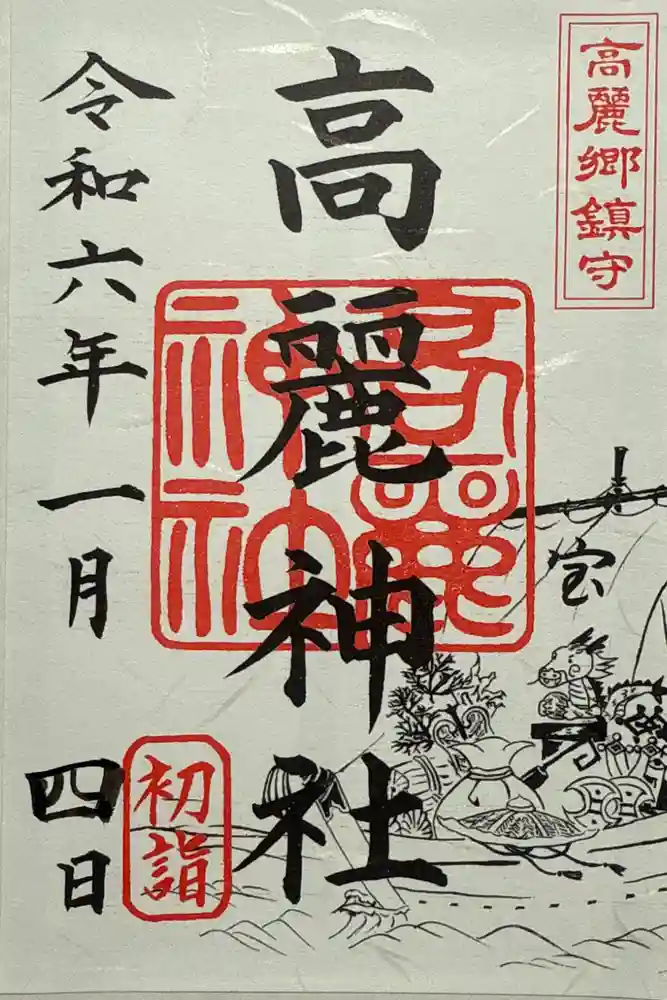 高麗郷鎮守
高麗神社
高麗神社
宝
令和六年一月
四日
初詣